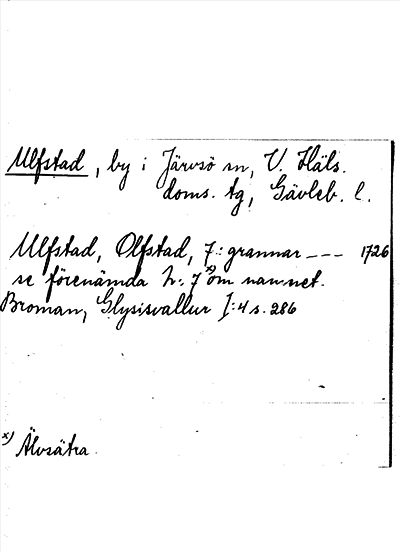 Ulfstad, by i Järvsö sn, V. Häls.
doms. tg, Gävleb. l.
Ulfstad, Olfstad, 7: grannar --- 1726
se förenämda N: 7 x) om namnet.
Broman, Glysisvallur I: 4 s. 286
x) Älvsätra.